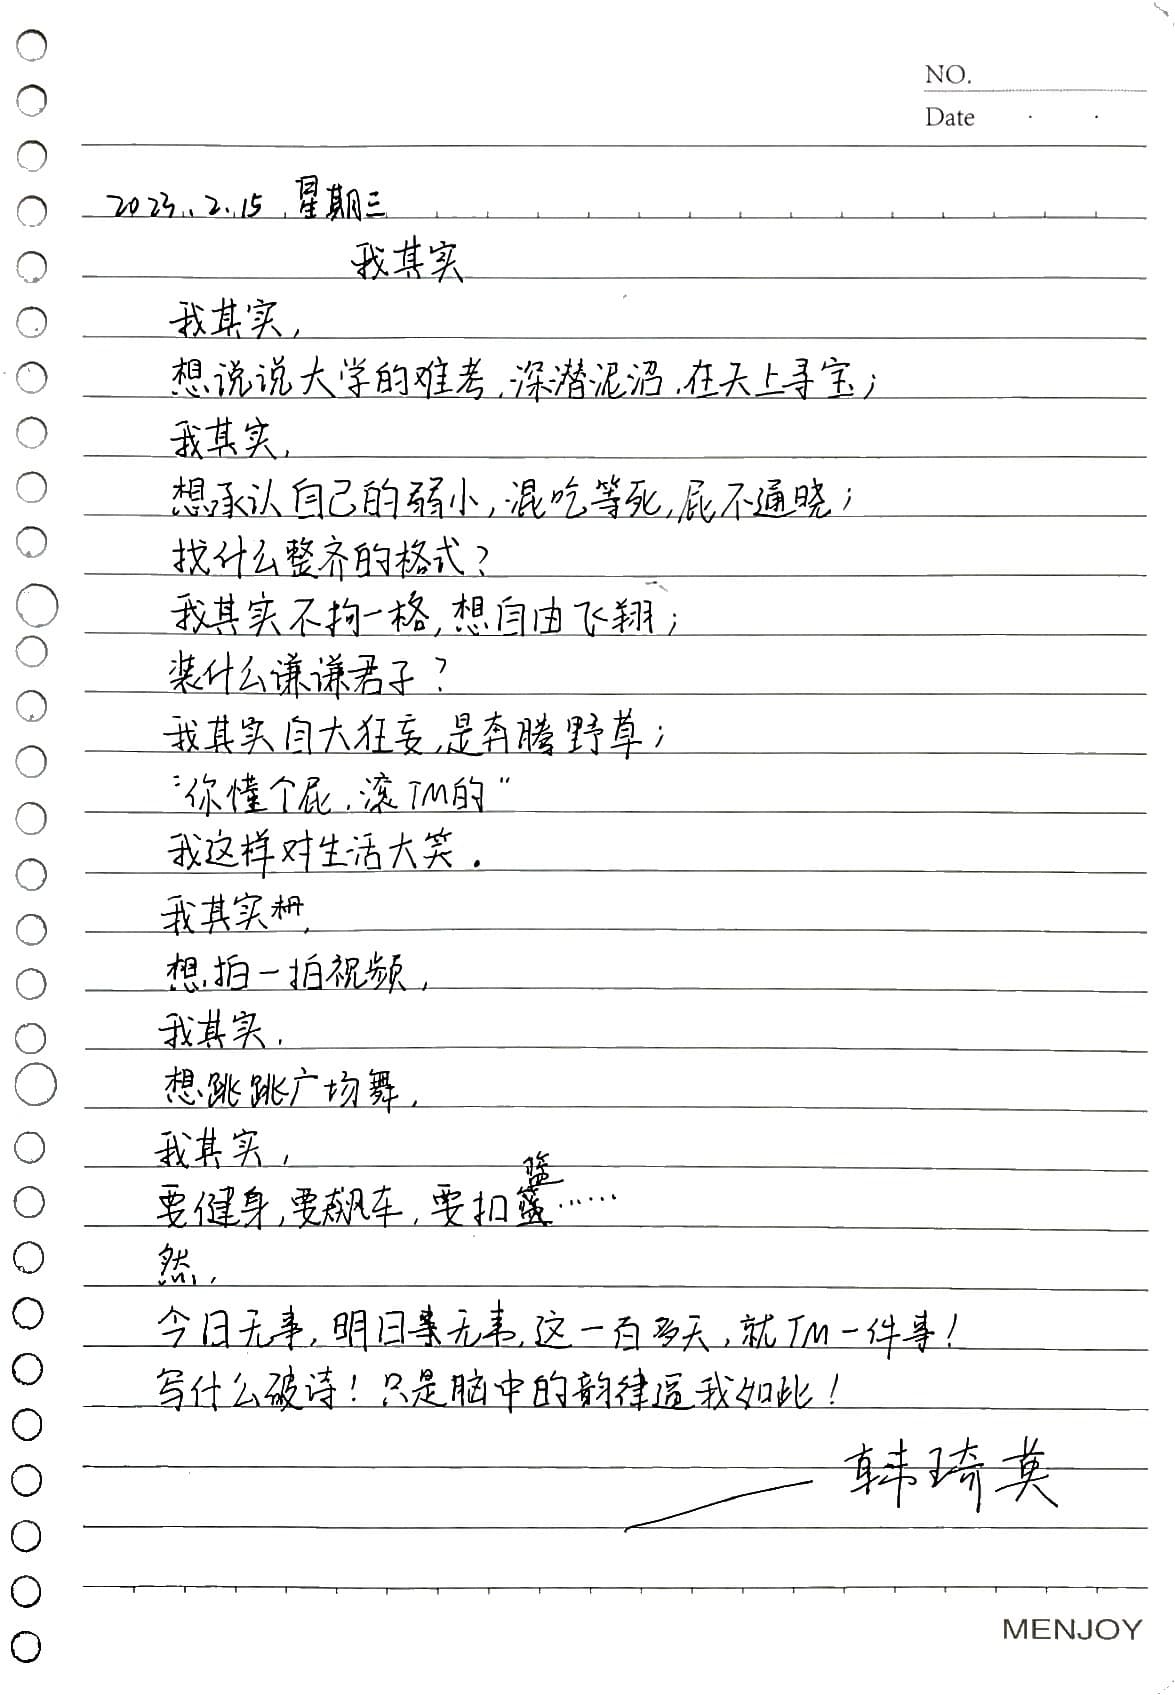 NO.
Date
2023.2.15 星期三
我其实
我其实,
想说说大学的难考,深潜泥沼,在天上寻宝;
我其实,
想承认自己的弱小,混吃等死,屁不通晓;
找什么整齐的格式?
我其实不拘一格,想自由飞翔;
装什么谦谦君子?
我其实自大狂妄,是奔腾野草;
“你懂个屁,滚TM的”
我这样对生活大笑.
我其实
想拍一拍视频,
我其实,
想跳跳广场舞,
我其实,
要健身,要飙车,要扣篮……
然,
今日无事,明日亦无事,这一百多天,就TM一件事!
写什么破诗!只是脑中的韵律逼我如此!
——韩琦英
MENJOY